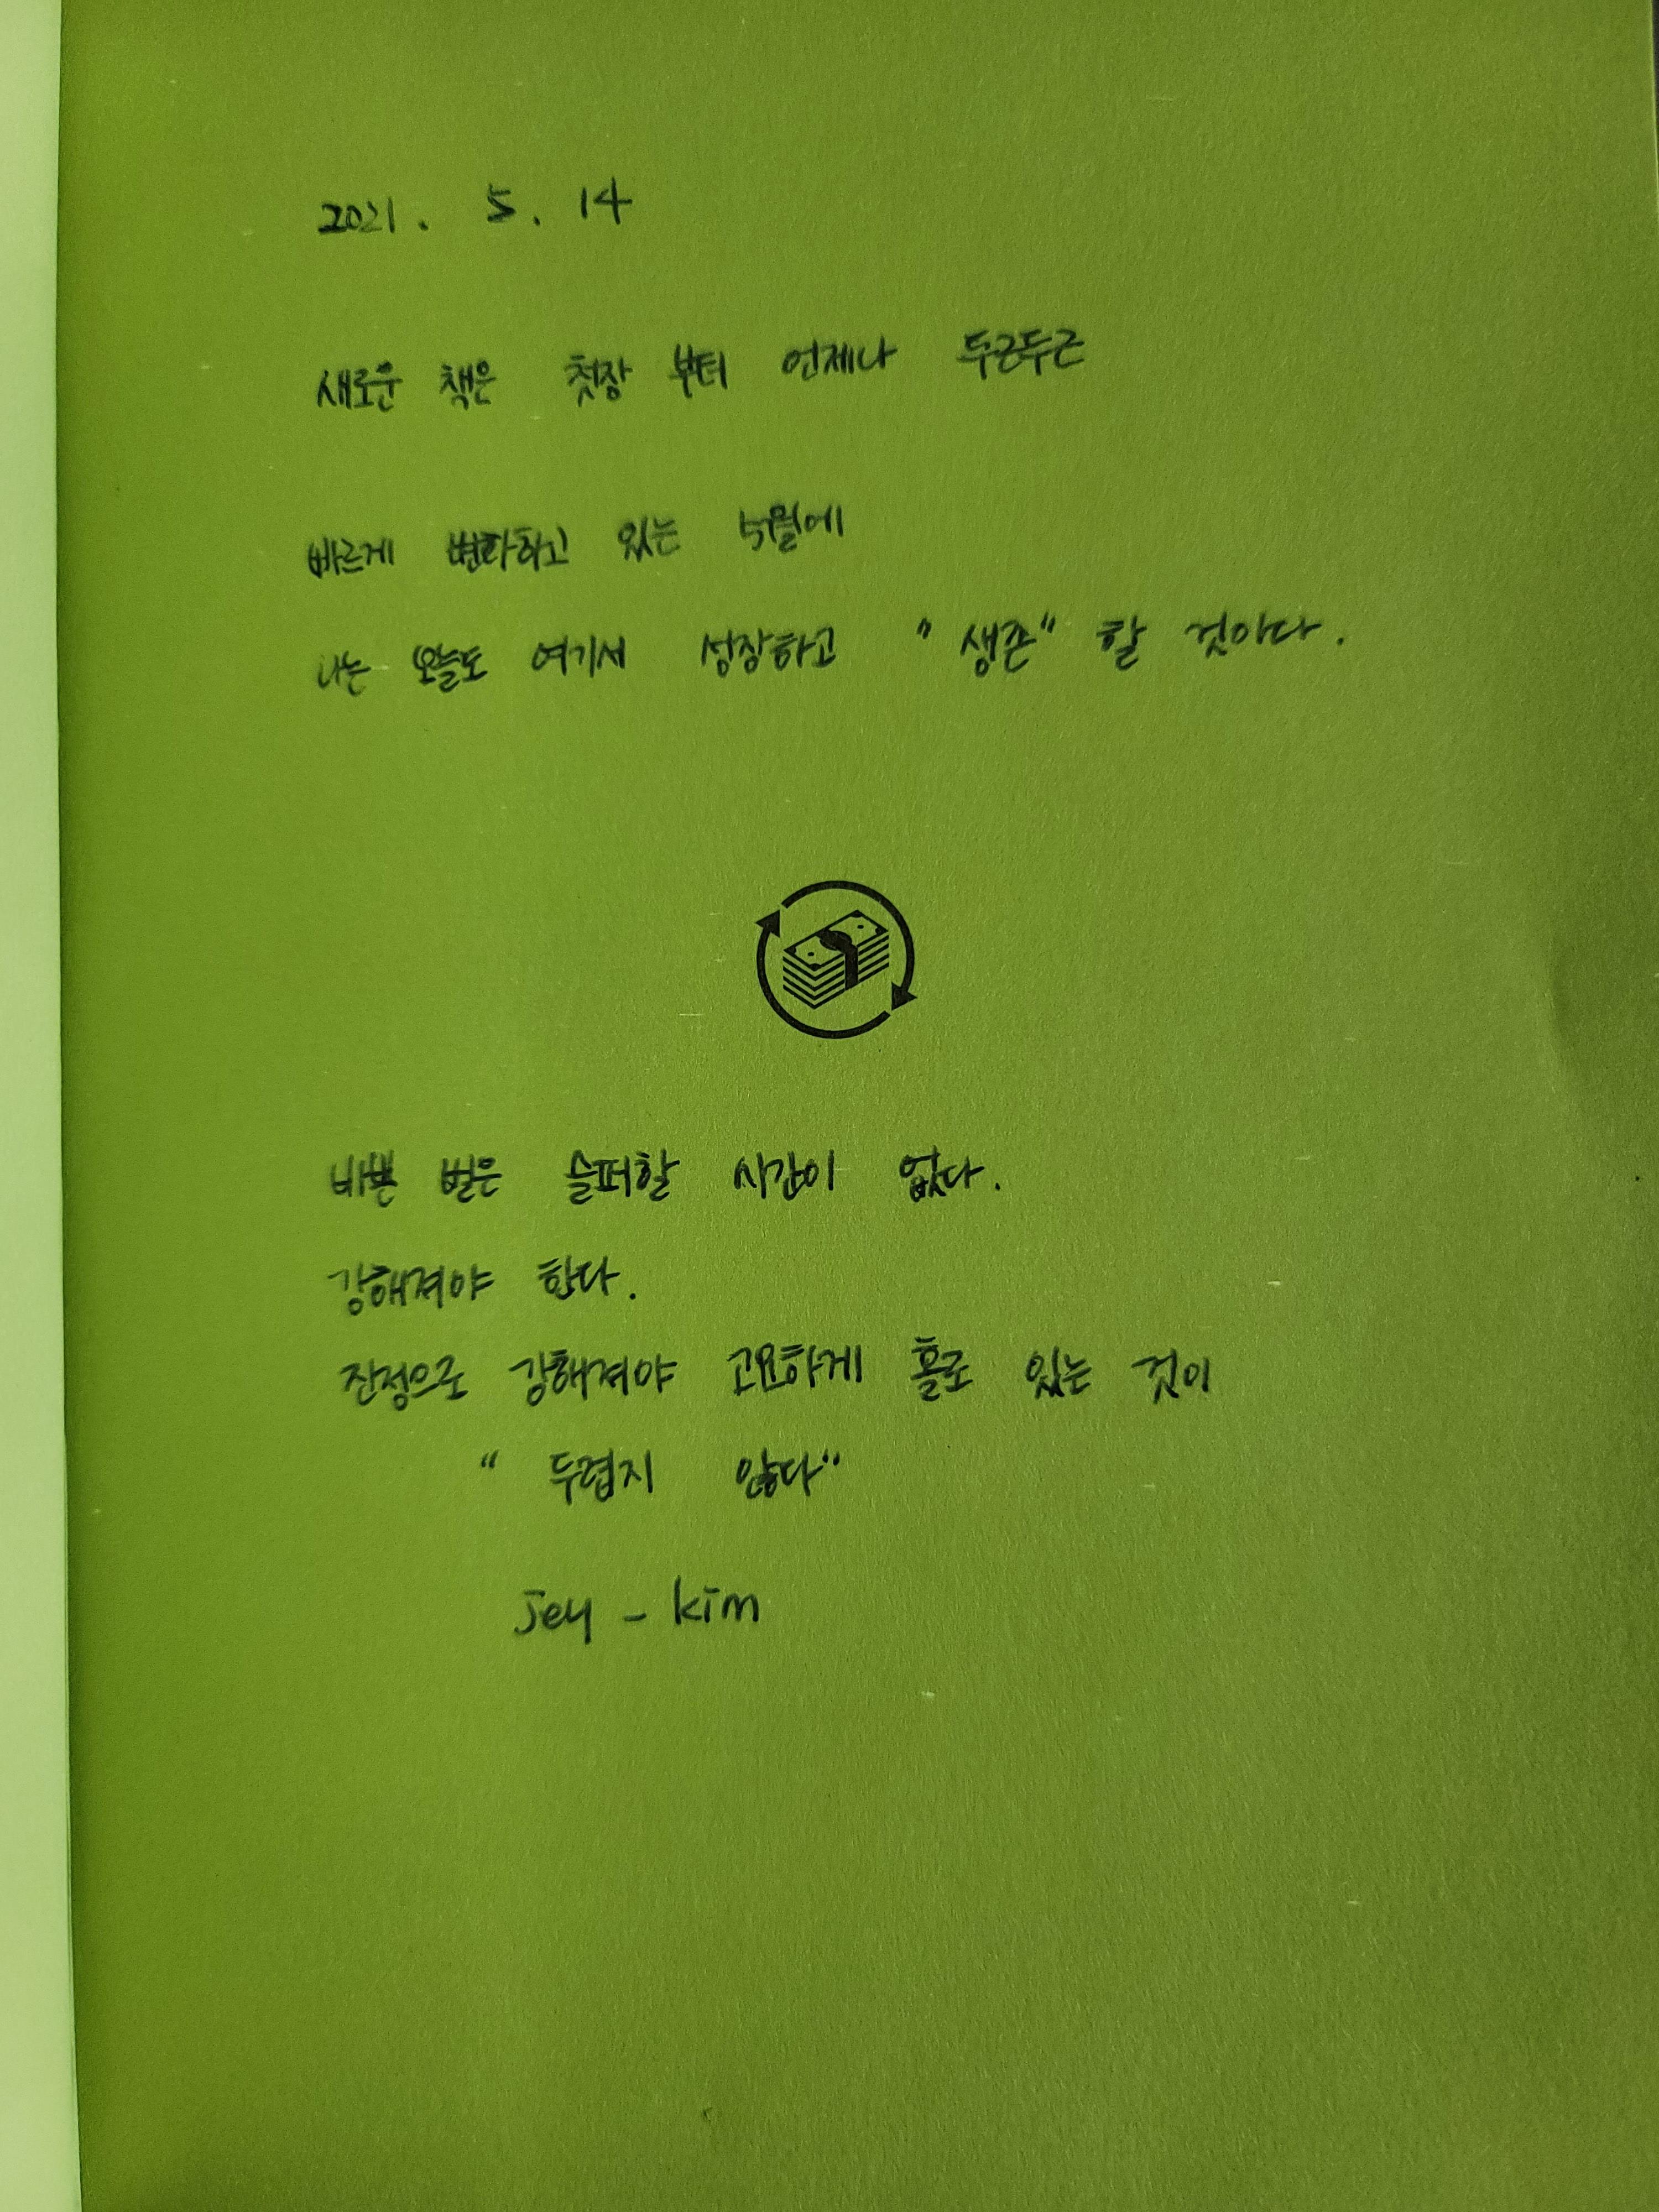 2021. 5. 14
새로운 책은 첫장 부터 언제나 두근두근
빠르게 변화하고 있는 5월에
나는 오늘도 여기서 성장하고 "생존" 할 것이다.
바쁜 벌은 슬퍼할 시간이 없다.
강해져야 한다.
진정으로 강해져야 고요하게 홀로 있는 것이
"두렵지 않다"
jey - kim